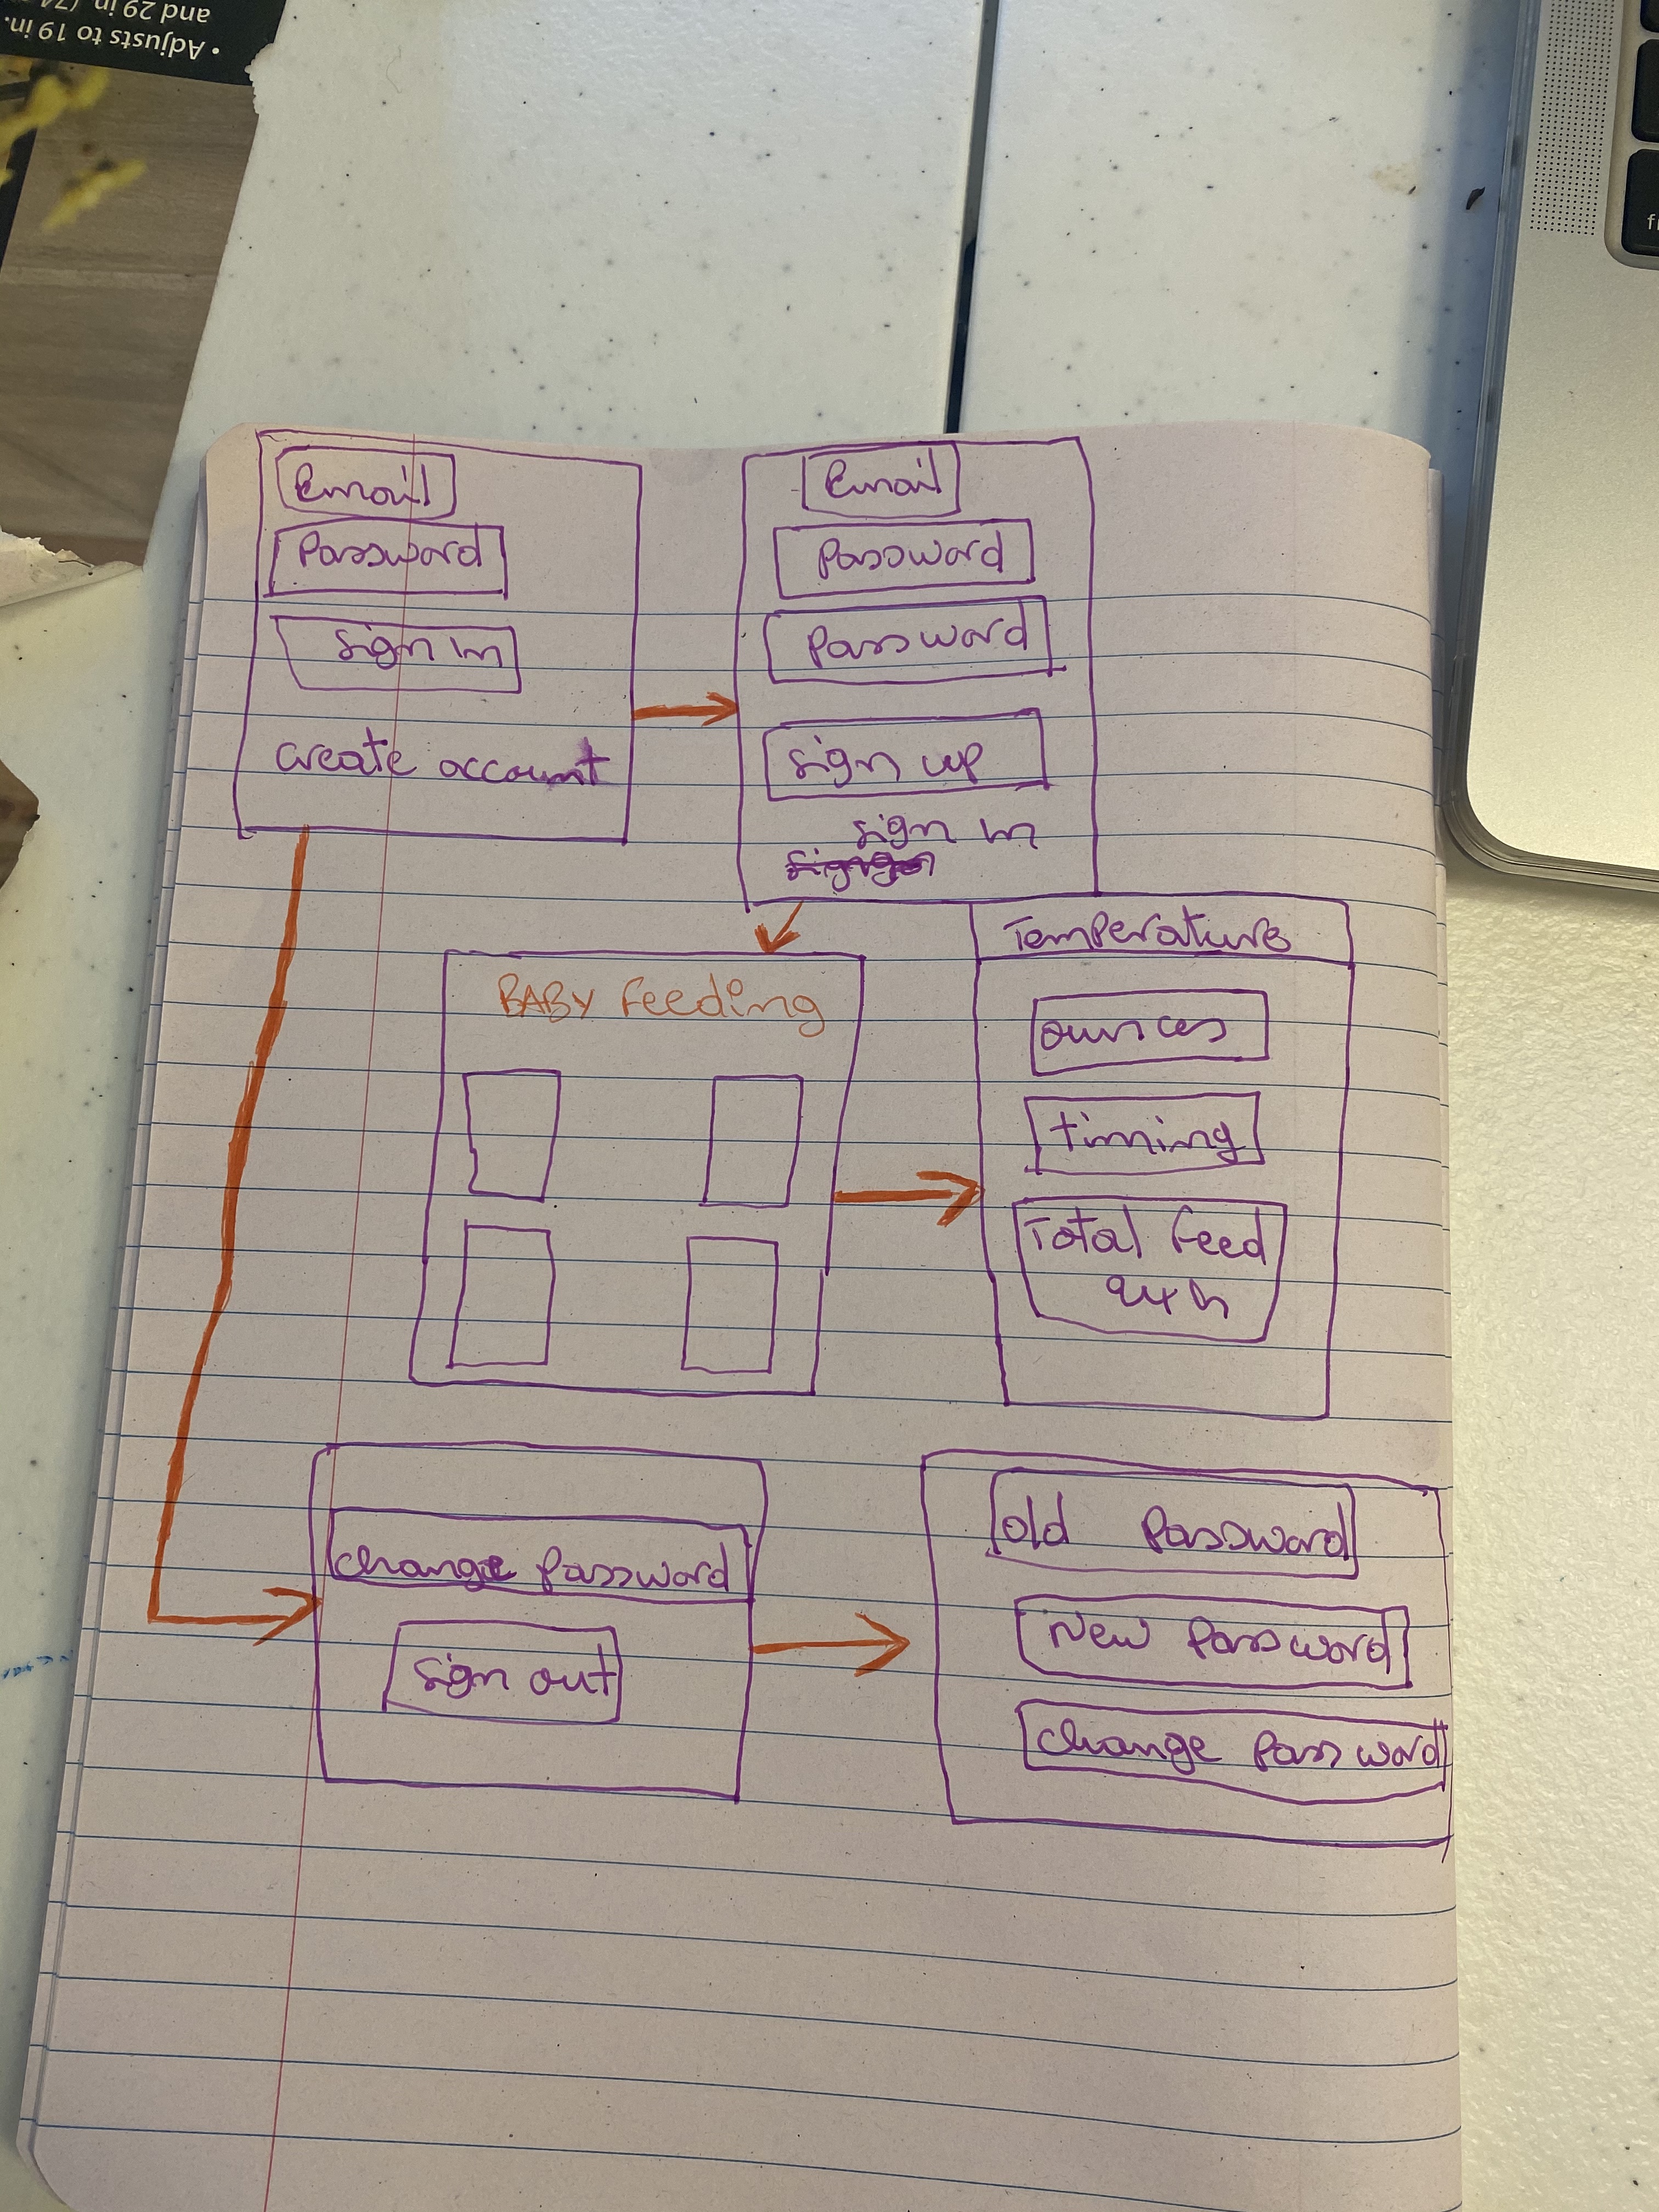 • Adjusts to 19 in.
and 29 in.
Email
Password
Sign in
create account
Email
Password
Password
Sign up
Sign in
BABY Feeding
Temperature
ounces
timing
Total Feed
24 h
change Password
Sign out
old Password
New Password
change Password